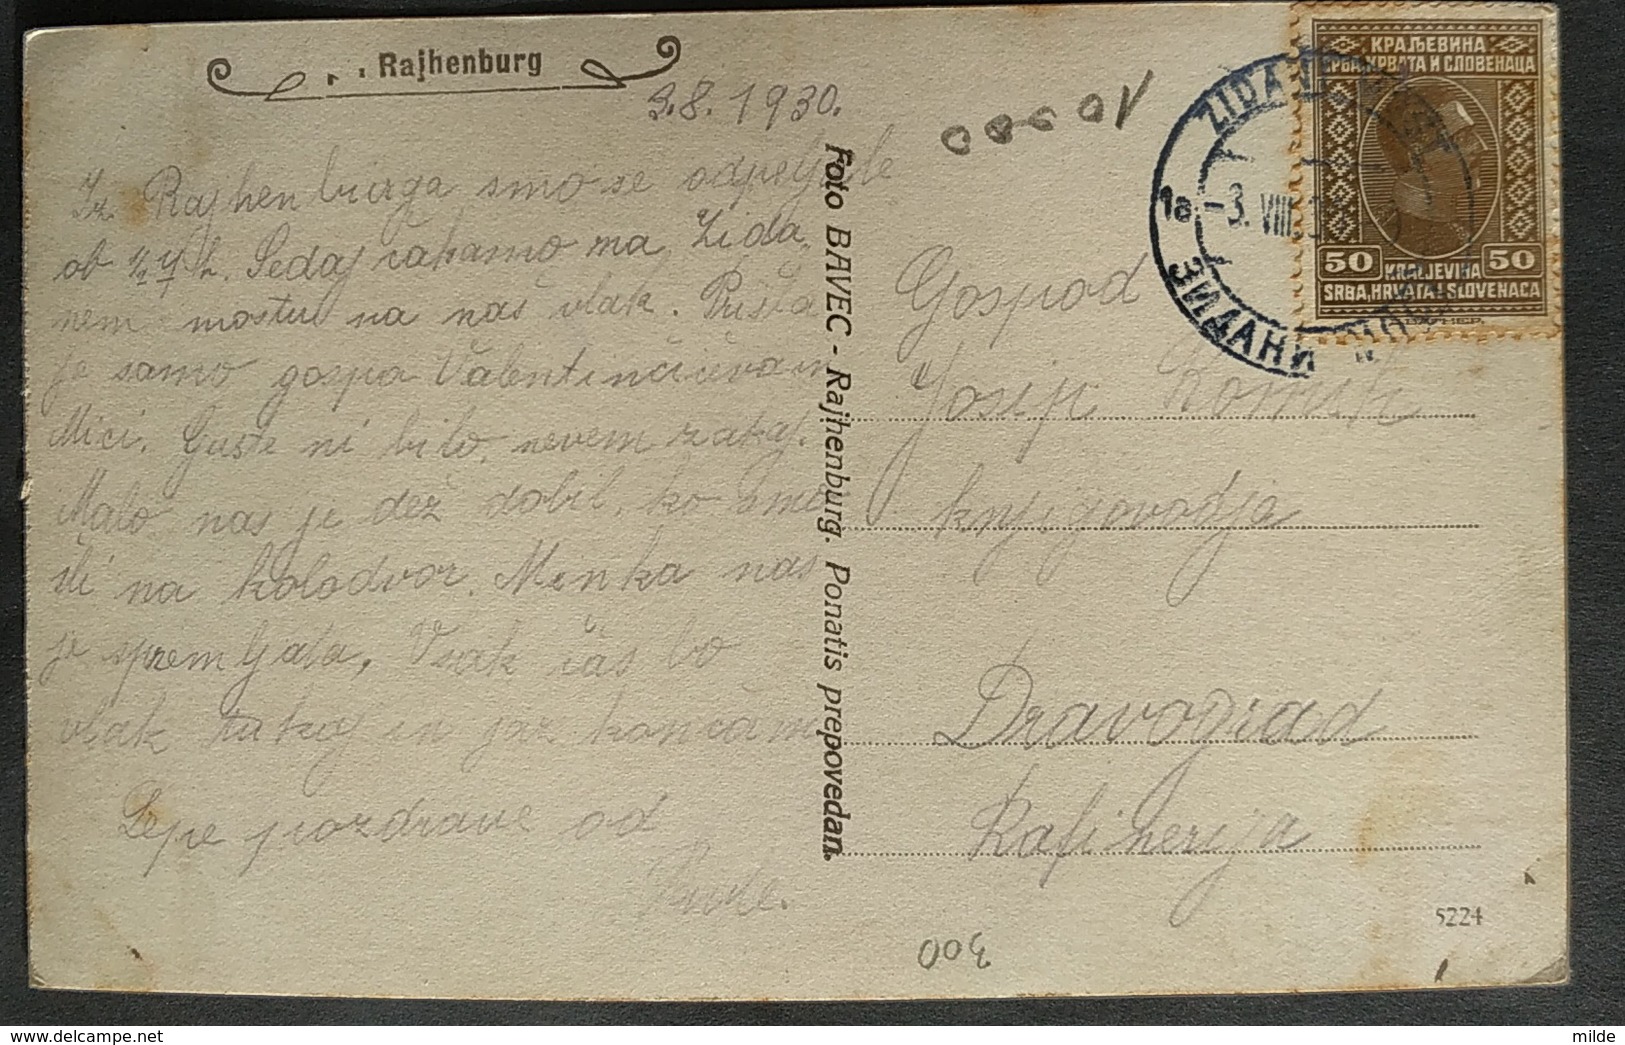 Rajhenburg
3.8.1930.
Iz Rajhenburga smo se odpeljale
ob 1/2 4 h. Sedaj čakamo na Zida
nem mostu na naš vlak. Prišla
je samo gospa Valentinčičeva in
Mici. Guste ni bilo, nevem zakaj.
Malo nas je dež dobil, ko smo
šli na kolodvor. Minka nas
je spremljala. Vsak čas bo
vlak tukaj in jaz končam
Lepe pozdrave od
Foto BAVEC - Rajhenburg. Ponatis prepovedan.
КРАЉЕВИНА
СРБА, ХРВАТА И СЛОВЕНАЦА
50 KRALJEVINA 50
SRBA, HRVATA I SLOVENACA
1a -3. VIII.
ЗИДАНИ
Gospod
Josip
knjigovodja
Dravograd
Rafinerija
5224
300
milde